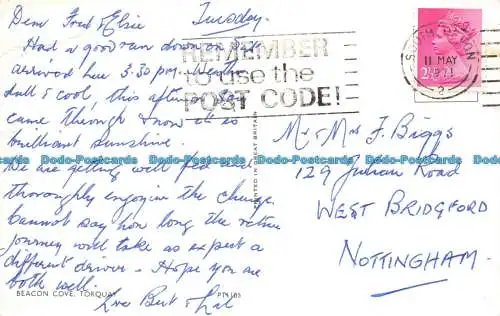 Dear Fred & Elsie Tuesday.
Had a good run down on Sat
arrived here 3.30 pm. Weather
dull & cool, this afternoon sun
came through & now it is
brilliant sunshine.
We are getting well fed and
thoroughly enjoying the change.
Cannot say how long the return
journey will take as expect a
different driver. Hope you are
both well.
Love Bert &
REMEMBER
to use the
POST CODE!
SOUTH DEVON
11 MAY
1971
2
2½P
Mr & Mrs F. Biggs
129 Julian Road
WEST BRIDGFORD
NOTTINGHAM.
PRINTED IN GREAT BRITAIN
BEACON COVE, TORQUAY
Dodo-Postcards Dodo-Postcards Dodo-Postcards Dodo-Postcards Dodo-Postcards
Dodo-Postcards Dodo-Postcards Dodo-Postcards Dodo-Postcards Dodo-Postcards